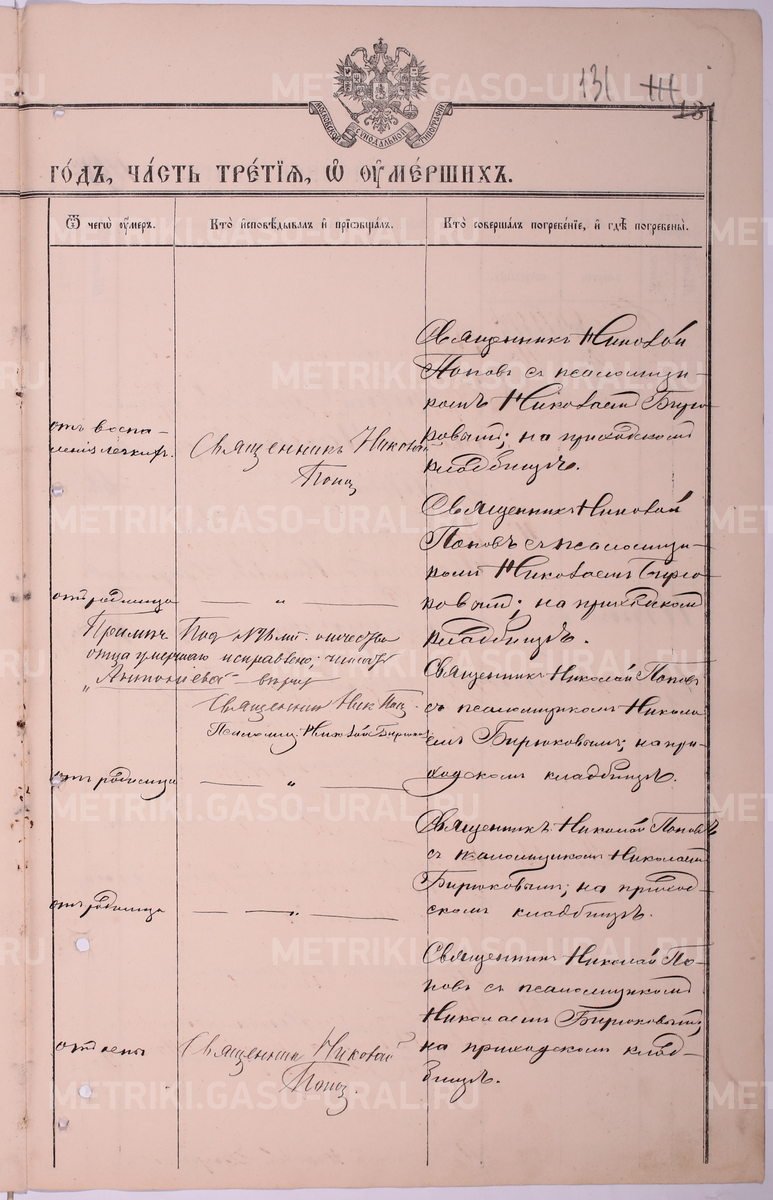 131
131
МОСКОВСКОЙ СУНОДАЛЬНОЙ ТИПОГРАФІИ
ГОДЪ, ЧАСТЬ ТРЕТІЯ, Ѿ ОУМЕРШИХЪ.
Ѿ чегѡ оумеръ.
Кто исповѣдывалъ и пріобщалъ.
Кто совершалъ погребеніе, и гдѣ погребены.
отъ воспа-
ленія легкихъ.
Священникъ Николай
Попов
Священникъ Николай
Поповъ съ псаломщи-
комъ Николаемъ Бирю-
ковымъ; на приходскомъ
кладбищѣ.
отъ родимца
— „ —
Священникъ Николай
Поповъ съ псаломщи-
комъ Николаемъ Бирю-
ковымъ; на приходскомъ
кладбищѣ.
Примѣч. Под № отчество
отца умершаго исправлено; читать
„Антоніева" вѣрно
Священник Ник Поп.
Псаломщ. Николай Бирюков
отъ родимца
— „ —
Священникъ Николай Поповъ
съ псаломщикомъ Никола-
емъ Бирюковымъ; на при-
ходскомъ кладбищѣ.
отъ родимца
— „ —
Священникъ Николай Поповъ
съ псаломщикомъ Николаемъ
Бирюковымъ; на приход-
скомъ кладбищѣ.
от оспы
Священник Николай
Попов.
Священникъ Николай По-
повъ съ псаломщикомъ
Николаемъ Бирюковымъ,
на приходскомъ клад-
бищѣ.
METRIKI.GASO-URAL.RU